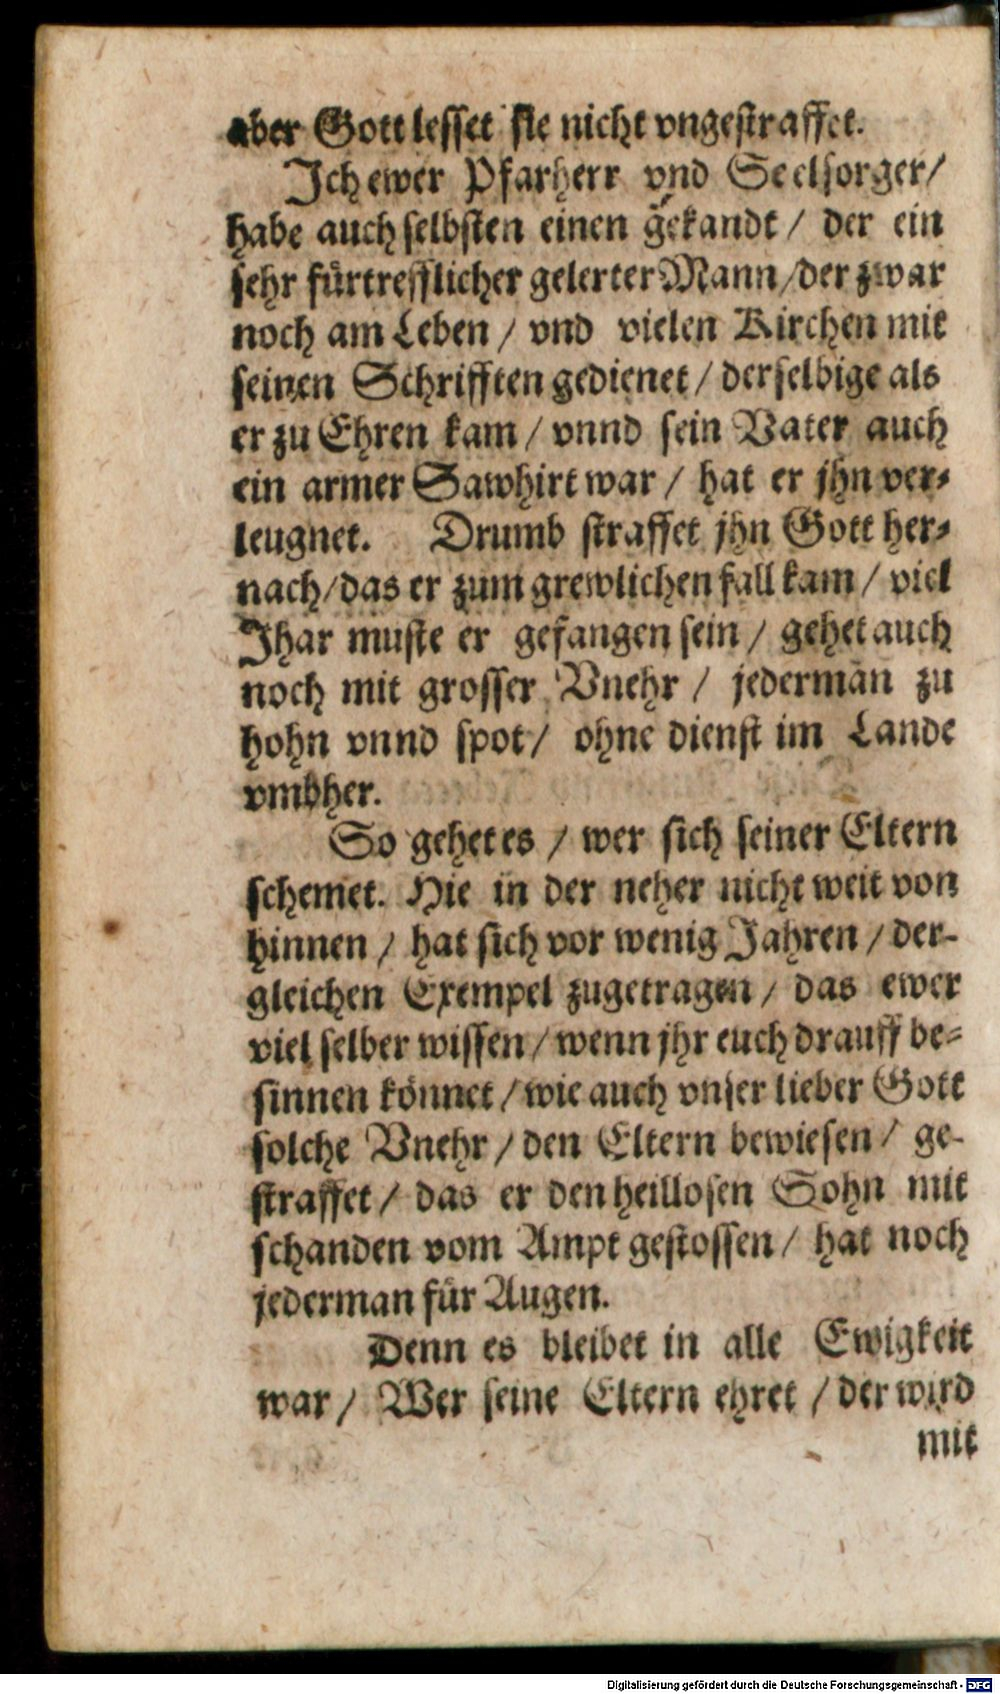 aber Gott lesset sie nicht vngestraffet.
Ich ewer Pfarherr vnd Seelsorger/
habe auch selbsten einen gekandt / der ein
sehr fürtrefflicher gelerter Mann / der zwar
noch am Leben / vnd vielen Kirchen mit
seinen Schrifften gedienet / derselbige als
er zu Ehren kam / vnnd sein Vater auch
ein armer Sawhirt war / hat er jhn ver-
leugnet. Drumb straffet jhn Gott her-
nach / das er zum grewlichen fall kam / viel
Jhar muste er gefangen sein / gehet auch
noch mit grosser Vnehr / jedermān zu
hohn vnnd spot / ohne dienst im Lande
vmbher.
So gehet es / wer sich seiner Eltern
schemet. Hie in der neher nicht weit von
hinnen / hat sich vor wenig Jahren / der-
gleichen Exempel zugetragen / das ewer
viel selber wissen / wenn jhr euch drauff be-
sinnen könnet / wie auch vnser lieber Gott
solche Vnehr / den Eltern bewiesen / ge-
straffet / das er den heillosen Sohn mit
schanden vom Ampt gestossen / hat noch
jederman für Augen.
Denn es bleibet in alle Ewigkeit
war / Wer seine Eltern ehret / der wird
mit
Digitalisierung gefördert durch die Deutsche Forschungsgemeinschaft - DFG